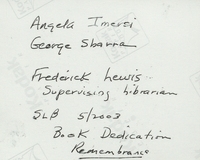 Angela Imersi
George Sbarra
Frederick Lewis
Supervising Librarian
SLB 5/2003
Book Dedication
Remembrance